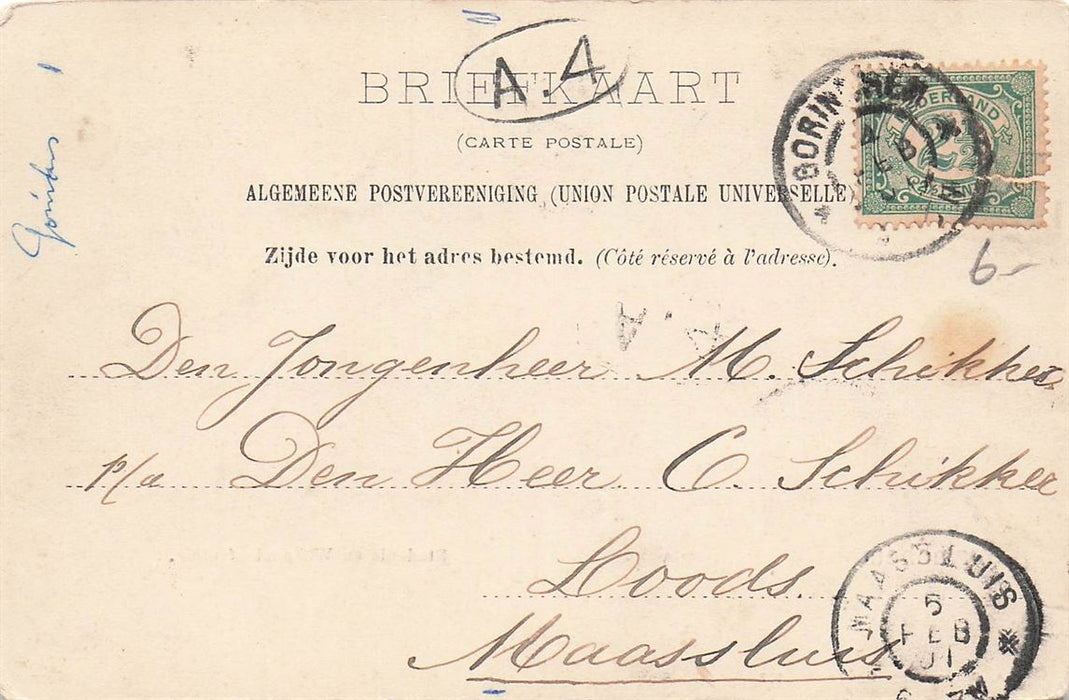 A.4
BRIEFKAART
(CARTE POSTALE)
ALGEMEENE POSTVEREENIGING (UNION POSTALE UNIVERSELLE)
Zijde voor het adres bestemd. (Côté réservé à l'adresse).
GORINCHEM
NEDERLAND
2½
CENT
6-
Den Jongenheer M. Schikker
p/a Den Heer C. Schikker
Loods.
Maassluis
MAASSLUIS
5
FEB
01